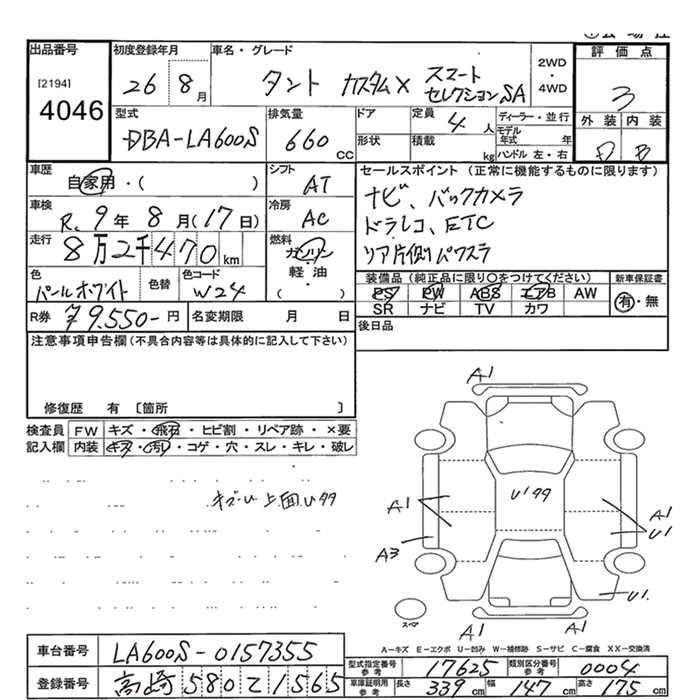 出品番号
[2194]
4046
初度登録年月
26 8月
車名・グレード
タント カスタムX スマートセレクションSA
2WD・4WD
評価点
3
外装 内装
D B
型式
DBA-LA600S
排気量
660 CC
ドア
形状
定員 4人
積載 kg
ディーラー・並行
モデル年式 年
ハンドル 左・右
車歴
自家用・( )
シフト
AT
車検
R.9年8月(17日)
冷房
AC
走行
8万2千470km
燃料
ガソリン
軽油
( )
色
パールホワイト
色替
色コード
W24
R券 ¥9,550-円
名変期限 月 日
セールスポイント(正常に機能するものに限ります)
ナビ、バックカメラ
ドラレコ、ETC
リア片側パワスラ
装備品(純正品に限り○をつけてください)
PS PW ABS エアB AW
SR ナビ TV カワ
新車保証書
有・無
後日品
注意事項申告欄(不具合内容等は具体的に記入して下さい)
修復歴 有 〔箇所 〕
検査員記入欄
FW キズ・飛石・ヒビ割・リペア跡・×要
内装 キズ・汚れ・コゲ・穴・スレ・キレ・破レ
上面U99
A1
U99
A1
A3
A1
U1
U1
A1
スペア
A-キズ E-エクボ U-凹み W-補修跡 S-サビ C-腐食 XX-交換済
車台番号 LA600S-0157355
登録番号 高崎580 1565
型式指定番号参考 17625
類別区分番号参考 0004
車庫証明用参考 長さ 339cm 幅 147cm 高さ 175cm